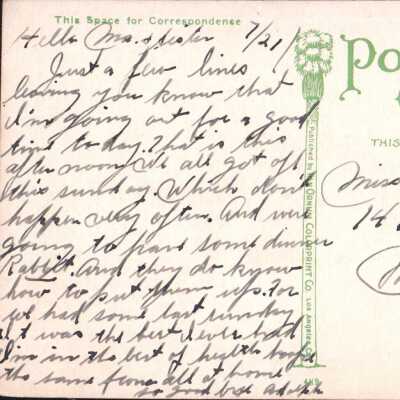 This Space for Correspondence
Hello Ma. & Sister 7/21/
Just a few lines
leaving you know that
I'm going out for a good
time to day. That is this
after noon. We all got off
this sunday. Which don't
happen very often. And were
going to have some dinner
Rabbit. And they do know
how to put them up. For
we had some last sunday
It was the best I ever had
I'm in the best of health hope
the same from all at home
so good bye Adolph
Po
THIS
Miss
14
Published by Van Ornum Colorprint Co. Los Angeles, C